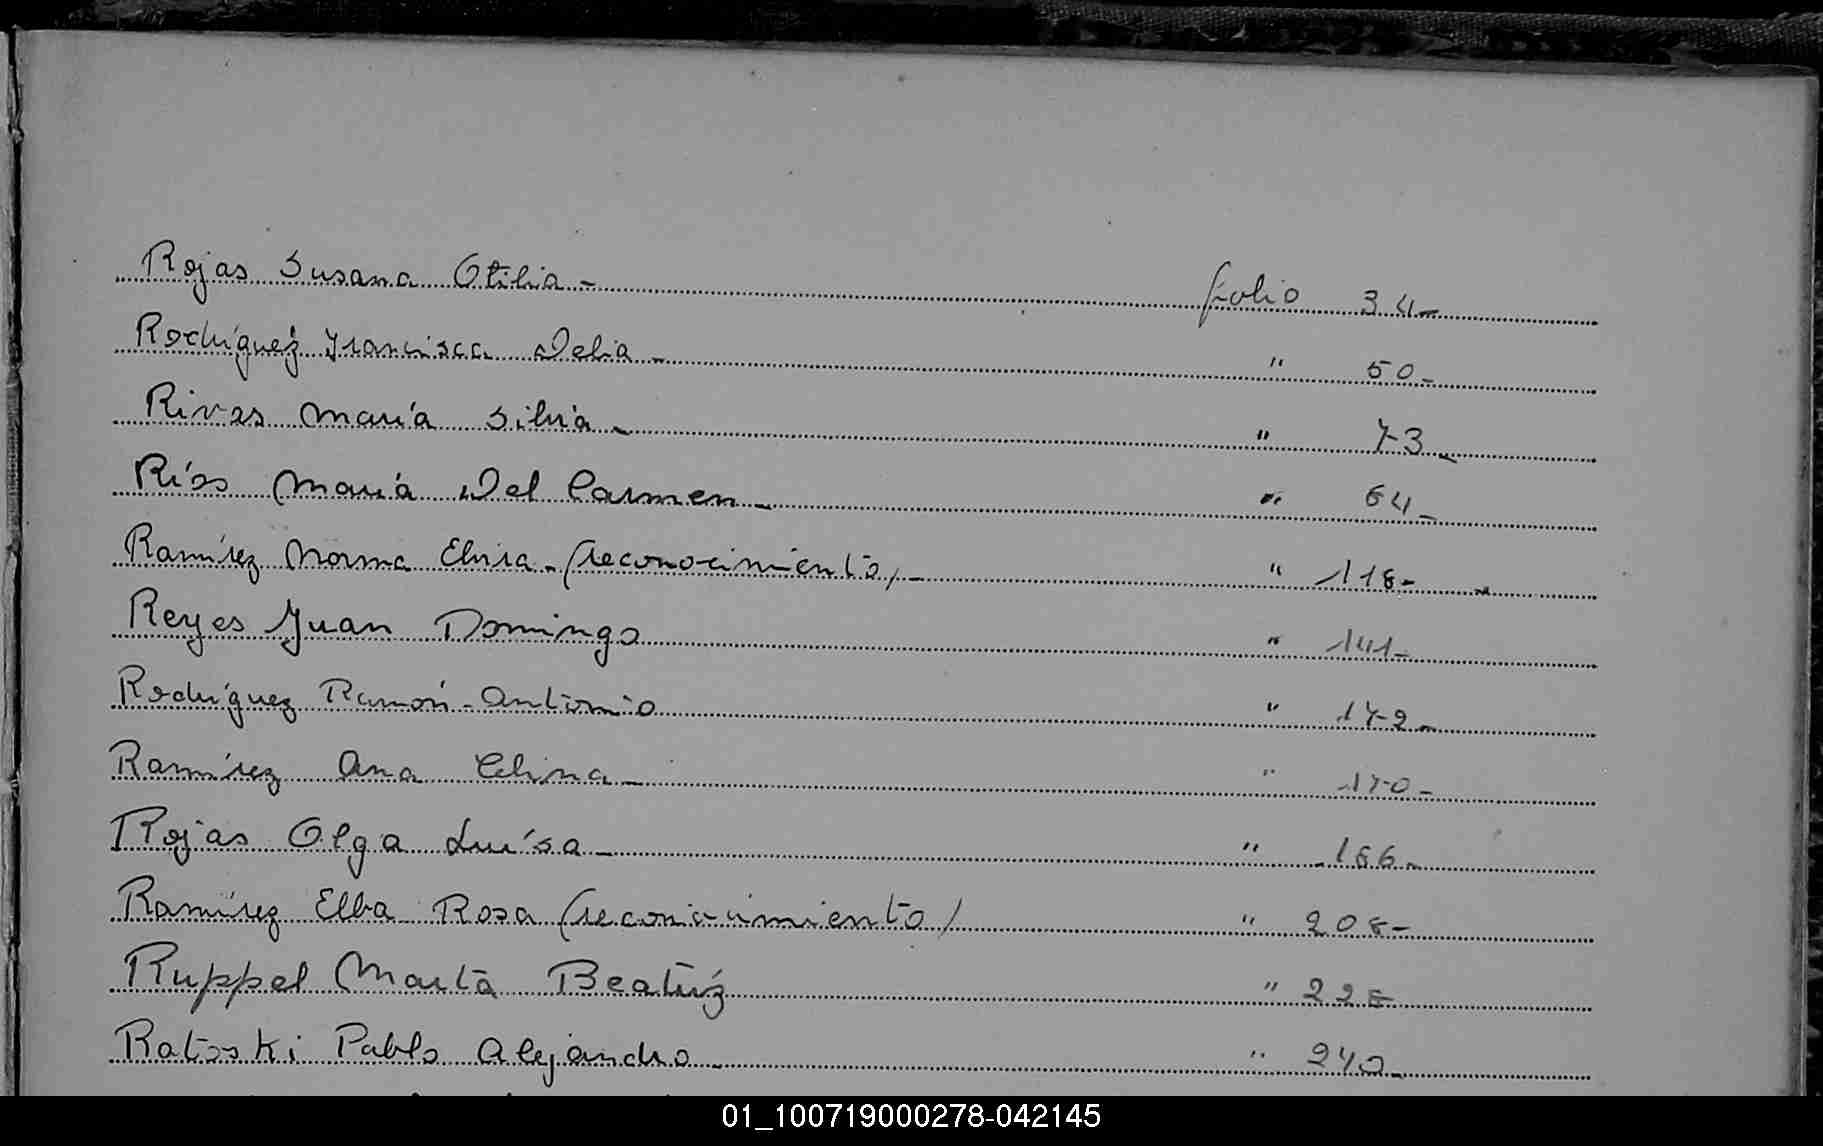 Rojas Susana Otilia - folio 34-
Rodríguez Francisca Delia - " 50-
Rivas María Silvia - " 73-
Ríos María Del Carmen - " 64-
Ramírez Norma Elvira - (reconocimiento) - " 118-
Reyes Juan Domingo " 141-
Rodríguez Ramón Antonio " 172-
Ramírez Ana Celina - " 170-
Rojas Olga Luísa - " 166-
Ramírez Elba Rosa (reconocimiento) " 208-
Ruppel Marta Beatríz " 228-
Ratoski Pablo Alejandro - " 240-
01_100719000278-042145